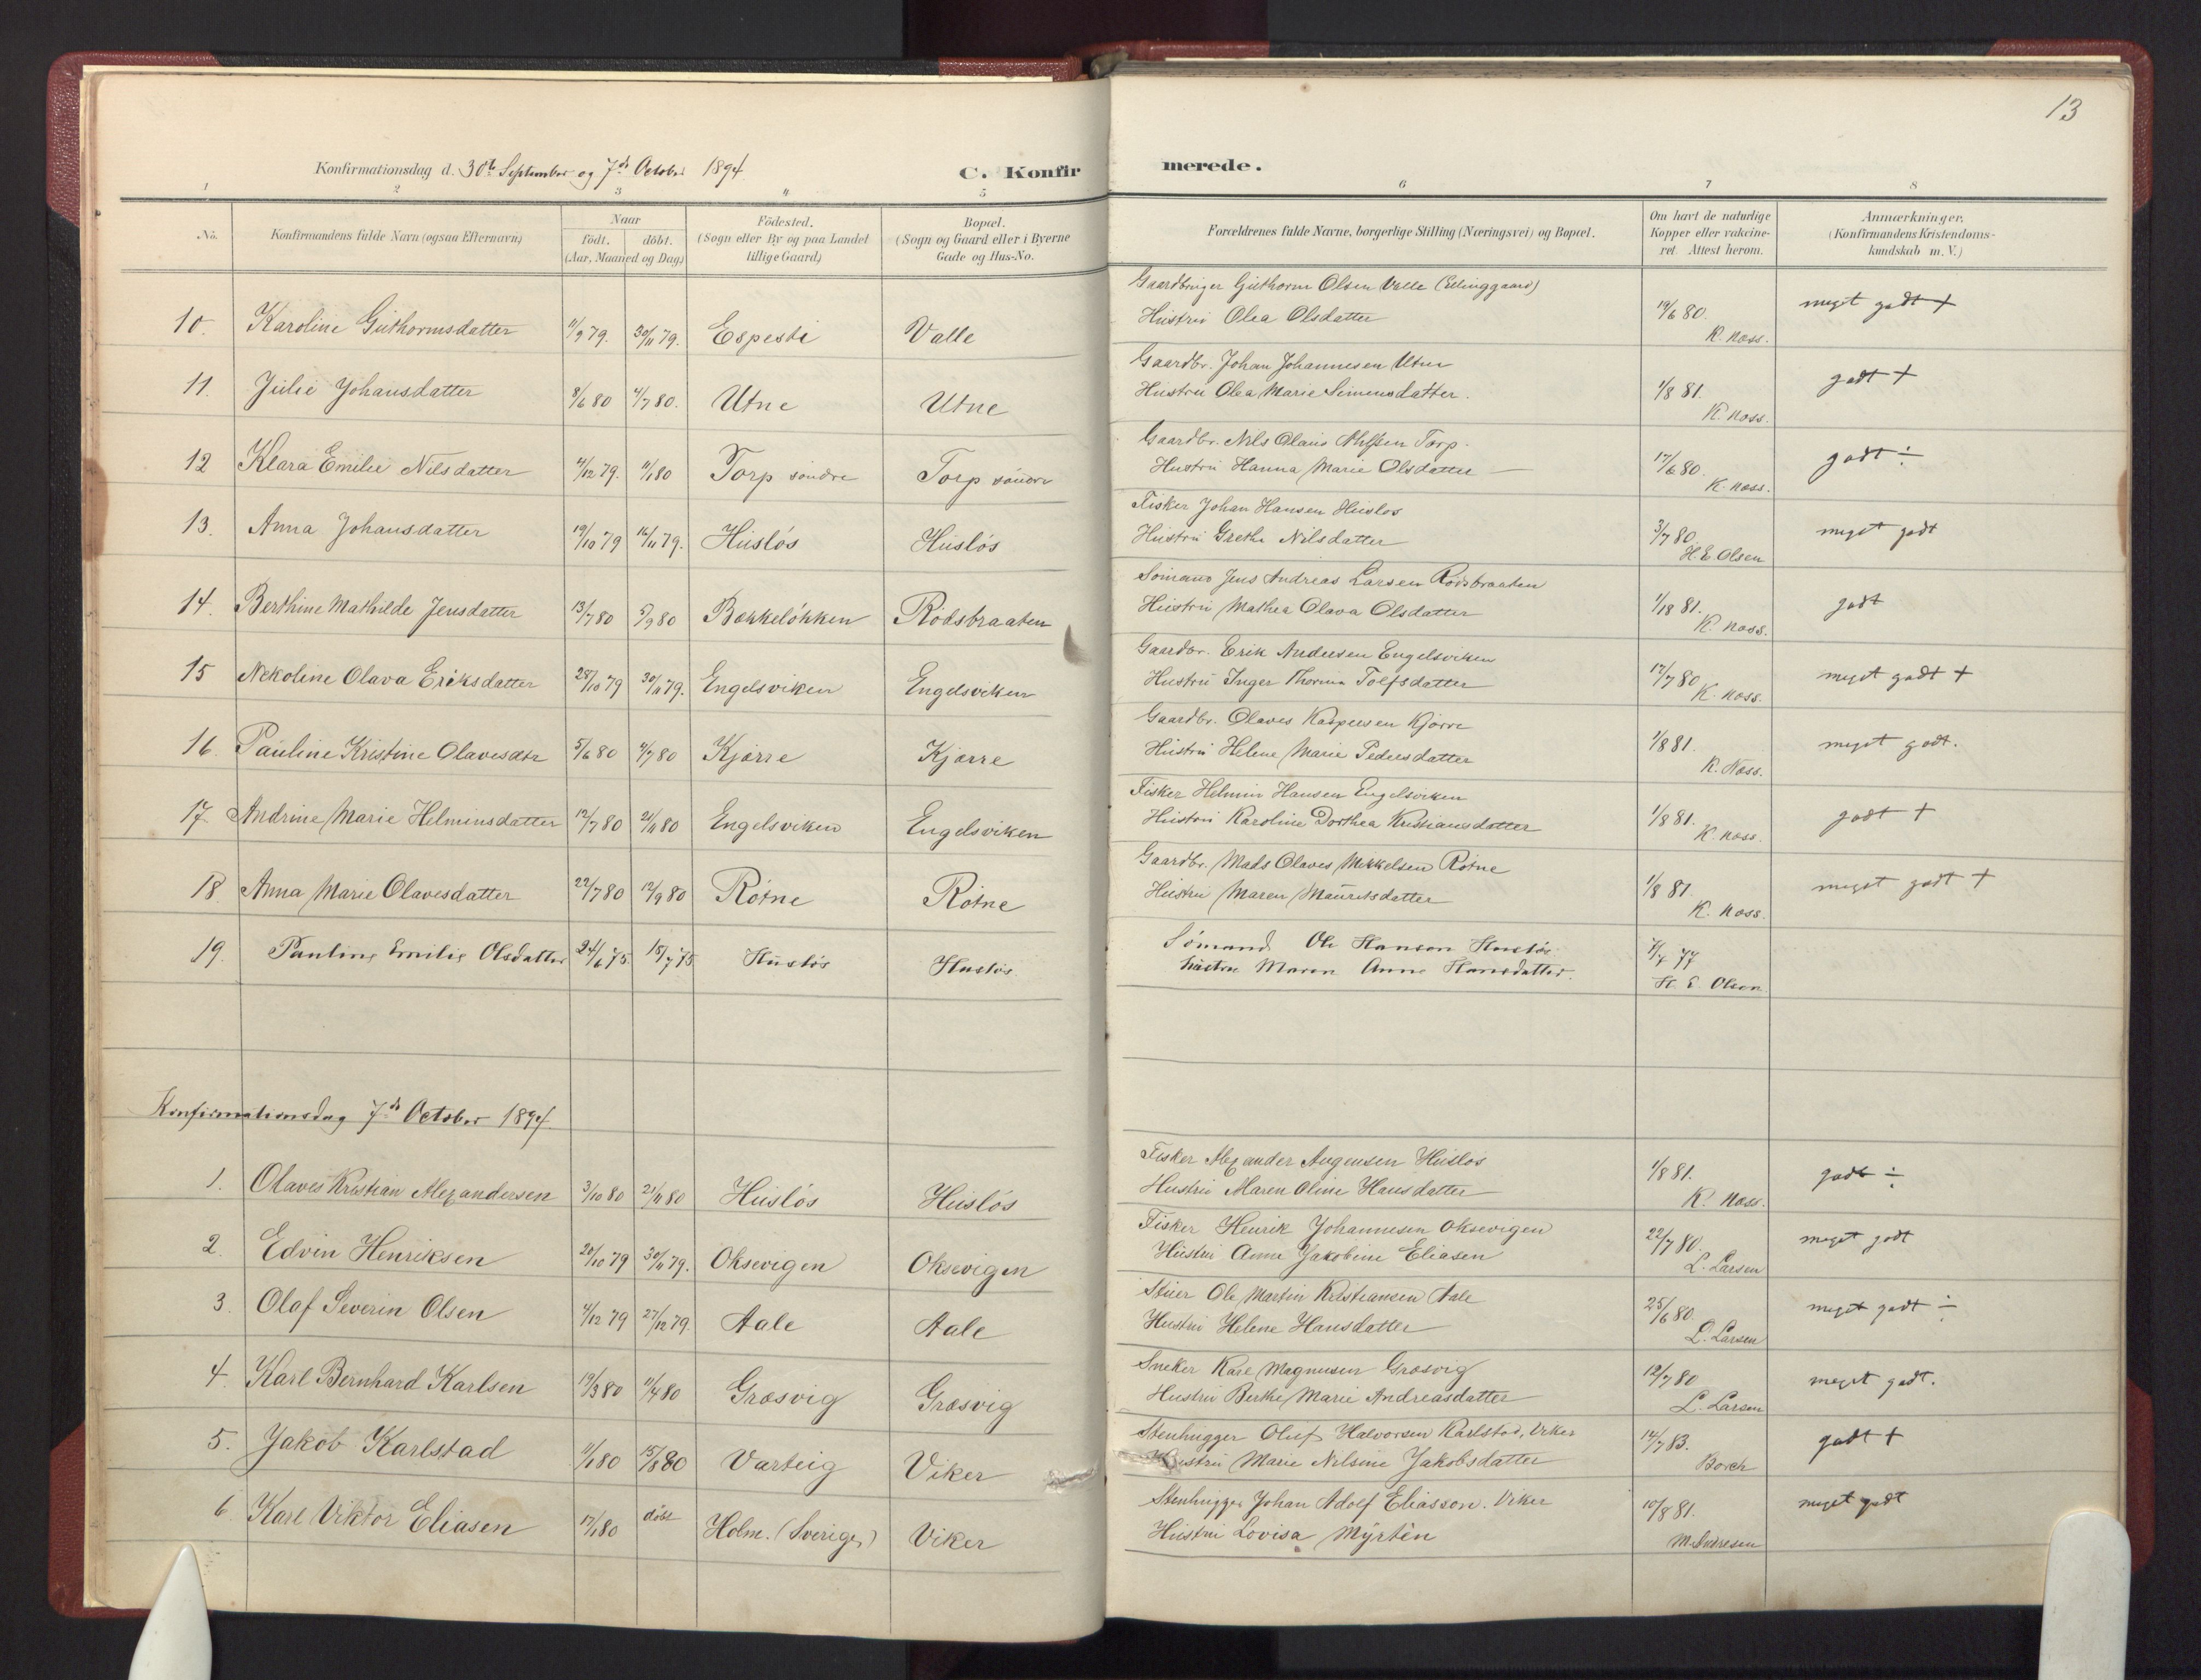 13
Konfirmationsdag d. 30te September og 7de October 1894
C. Konfirmerede.
1 2 3 4 5 6 7 8
No. Konfirmandens fulde Navn (ogsaa Efternavn) Naar födt. döbt. (Aar, Maaned og Dag) Födested. (Sogn eller By og paa Landet tillige Gaard) Bopæl. (Sogn og Gaard eller i Byerne Gade og Hus-No. Forældrenes fulde Navne, borgerlige Stilling (Næringsvei) og Bopæl. Om havt de naturlige Kopper eller vakcineret. Attest herom. Anmærkninger. (Konfirmandens Kristendomskundskab m. V.)
10. Karoline Guthormsdatter 11/9 79. 30/11 79. Espesti Valle Gaardbruger Guthorm Olsen Valle (Ellinggaard) Hustru Olea Olsdatter 19/6 80. K. Næss. meget godt +
11. Julie Johansdatter 8/6 80 4/7 80. Utne Utne Gaardbr. Johan Johannesen Utne Hustru Olea Marie Simensdatter. 1/8 81. K. Næss. godt +
12 Klara Emilie Nilsdatter 4/12 79. 11/1 80 Torp söndre Torp söndre Gaardbr. Nils Olaus Nilssen Torp. Hustru Hanna Marie Olsdatter 17/6 80. K. Næss. godt ÷
13. Anna Johansdatter 19/10 79 16/11 79. Huslös Huslös Fisker Johan Hansen Huslös Hustru Grethe Nilsdatter 3/7 80. H. E. Olsen meget godt
14. Berthine Mathilde Jensdatter 13/7 80 5/9 80 Bækkelökken Rödsbraaten Sömand Jens Andreas Larsen Rödsbraaten Hustru Mathea Olava Olsdatter 1/18 81. K. Næss. godt
15 Nekoline Olava Eriksdatter 28/10 79 30/11 79. Engelsviken Engelsviken Gaardbr. Erik Andersen Engelsviken Hustru Inger Thorine Tolfsdatter 17/7 80 K. Næss. meget godt +
16. Pauline Kristine Olavesdtr 5/6 80 4/7 80 Kjærre Kjærre Gaardbr. Olaves Kaspersen Kjærre Hustru Helene Marie Pedersdatter 1/8 81. K. Næss. meget godt.
17. Andrine Marie Helminsdatter 12/7 80 21/11 80 Engelsviken Engelsviken Fisker Helmin Hansen Engelsviken Hustru Karoline Dorthea Kristiansdatter 1/8 81. K. Næss. godt +
18. Anna Marie Olavesdatter 22/7 80 12/9 80 Rötne Rötne Gaardbr. Mads Olaves Mikkelsen Rötne Hustru Maren Mauritsdatter 1/8 81. K. Næss. meget godt +
19. Pauline Emilie Olsdatter 24/6 75. 18/7 75 Huslös Huslös. Sömand Ole Hansen Huslös hustru Maren Anne Hansdatter. 77 H. E. Olsen
Konfirmationsdag 7de October 1894.
1. Olaves Kristian Alexandersen 3/10 80 21/11 80 Huslös Huslös Fisker Alexander Augensen Huslös Hustru Maren Oline Hansdatter 1/8 81. K. Næss. godt ÷
2. Edvin Henriksen 20/10 79 30/11 79. Oksevigen Oksevigen Fisker Henrik Johannesen Oksevigen Hustru Anne Jakobine Eliasen 22/7 80. L. Larsen meget godt
3. Olaf Severin Olsen 4/12 79 27/12 79. Aale Aale Stuer Ole Martin Kristiansen Aale Hustru Helene Hansdatter 25/6 80. L. Larsen meget godt ÷
4. Karl Bernhard Karlsen 19/3 80 11/4 80 Græsvig Græsvig Sneker Karl Magnusen Græsvig Hustru Berthe Marie Andreasdatter 12/7 80 L. Larsen meget godt.
5. Jakob Karlstad 11/1 80 15/8 80 Varteig Viker Stenhugger Oluf Halvorsen Karlstad, Viker Hustru Marie Nilsine Jakobsdatter 14/7 83. Borch godt +
6. Karl Viktor Eliasen 17/1 80 döbt Holm. (Sverige) Viker Stenhugger Johan Adolf Eliasson. Viker Hustru Lovisa Myrtin 10/8 81. meget godt